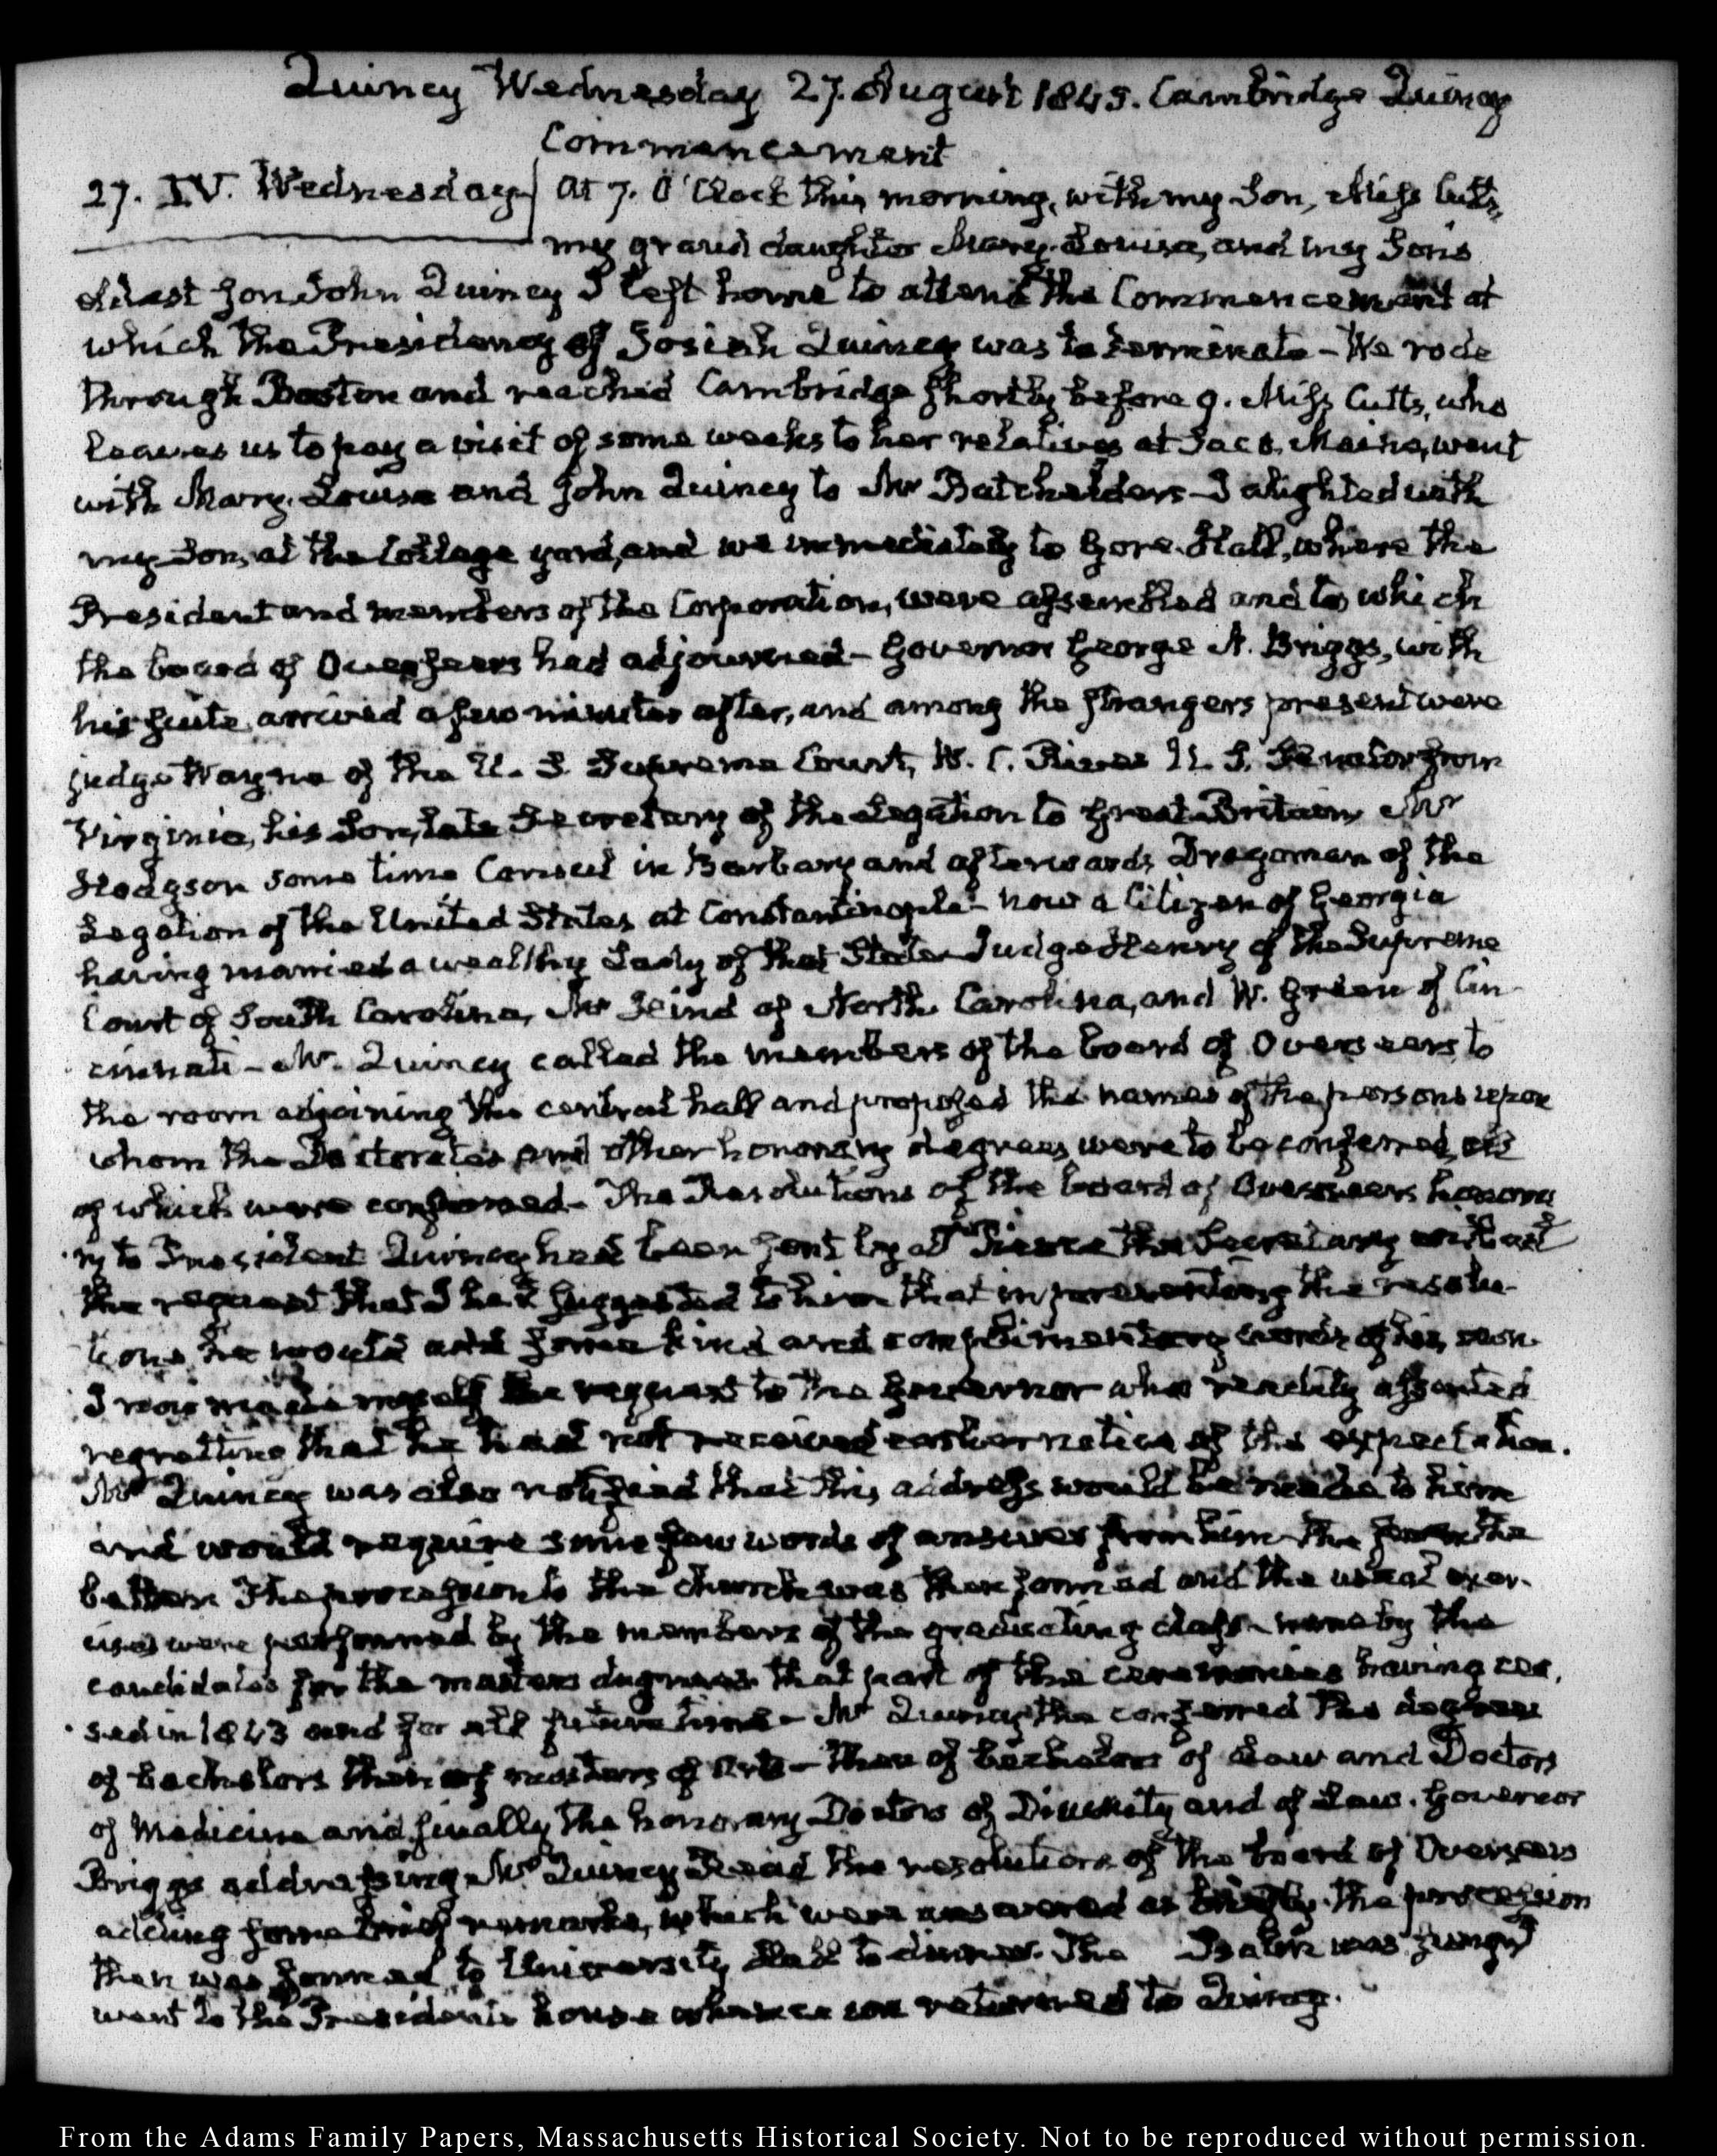 Quincy Wednesday 27. August 1845. Cambridge Quincy
Commencement
27. IV. Wednesday At 7. O'Clock this morning, with my Son, Miss Cutts,
my grand daughter Mary-Louisa, and my Sons
eldest son John Quincy I left home to attend the Commencement at
which the Presidency of Josiah Quincy was to terminate - We rode
through Boston and reached Cambridge shortly before 9. Miss Cutts, who
leaves us to pay a visit of some weeks to her relatives at Saco, Maine, went
with Mary-Louisa and John Quincy to Mr Batchelders - I alighted with
my Son, at the College yard, and we immediately to Gore-Hall, where the
President and members of the Corporation, were assembled and to which
the board of Overseers had adjourned - Governor George N. Briggs, with
his suite arrived a few minutes after, and among the strangers present were
judge Wayne of the U. S. Supreme Court, W. C. Rives U. S. Senator from
Virginia, his Son, late Secretary of the Legation to Great-Britain, Mr
Hodgson some time Consul in Barbary and afterwards Dragoman of the
Legation of the United States at Constantinople - now a Citizen of Georgia
having married a wealthy Lady of that State - Judge Henry of the Supreme
Court of South Carolina, Mr of North Carolina, and W. Green of Cin-
cinnati - Mr Quincy called the members of the board of Overseers to
the room adjoining the central hall and proposed the names of the persons upon
whom the Doctorates and other honorary degrees were to be conferred, all
of which were confirmed - The Resolutions of the board of Overseers honora
ry to President Quincy had been sent by Dr Pierce the Secretary without
the request that I had suggested to him that in presenting the resolu-
tions he would add some kind and complimentary words of his own.
I now made myself the request to the Governor who readily assented
regretting that he had not received earlier notice of the expectation.
Mr Quincy was also notified that this address would be made to him
and would require some few words of answer from him - the the
better. The procession to the church was then formed and the usual exer-
cises were performed by the members of the graduating class - none by the
candidates for the masters degrees that part of the ceremonies having cea-
sed in 1843 and for all future time - Mr Quincy then conferred the degrees
of bachelors then of masters of Arts - then of bachelors of Law and Doctors
of Medicine and finally the honorary Doctors of Divinity and of Law. Governor
Briggs addressing Mr Quincy Read the resolutions of the board of Overseers
adding some brief remarks, which were answered as briefly. The procession
then was formed to University Hall to dinner. The Psalm was sung I
went to the Presidents house whence we returned to Quincy.
From the Adams Family Papers, Massachusetts Historical Society. Not to be reproduced without permission.